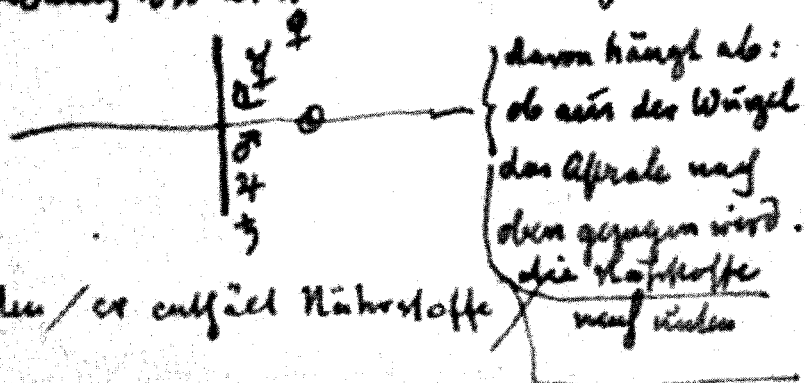 davon hängt ab:
ob aus der Wurzel
das Astrale nach
oben gezogen wird.
die Nährstoffe
nach unten
er enthält Nährstoffe